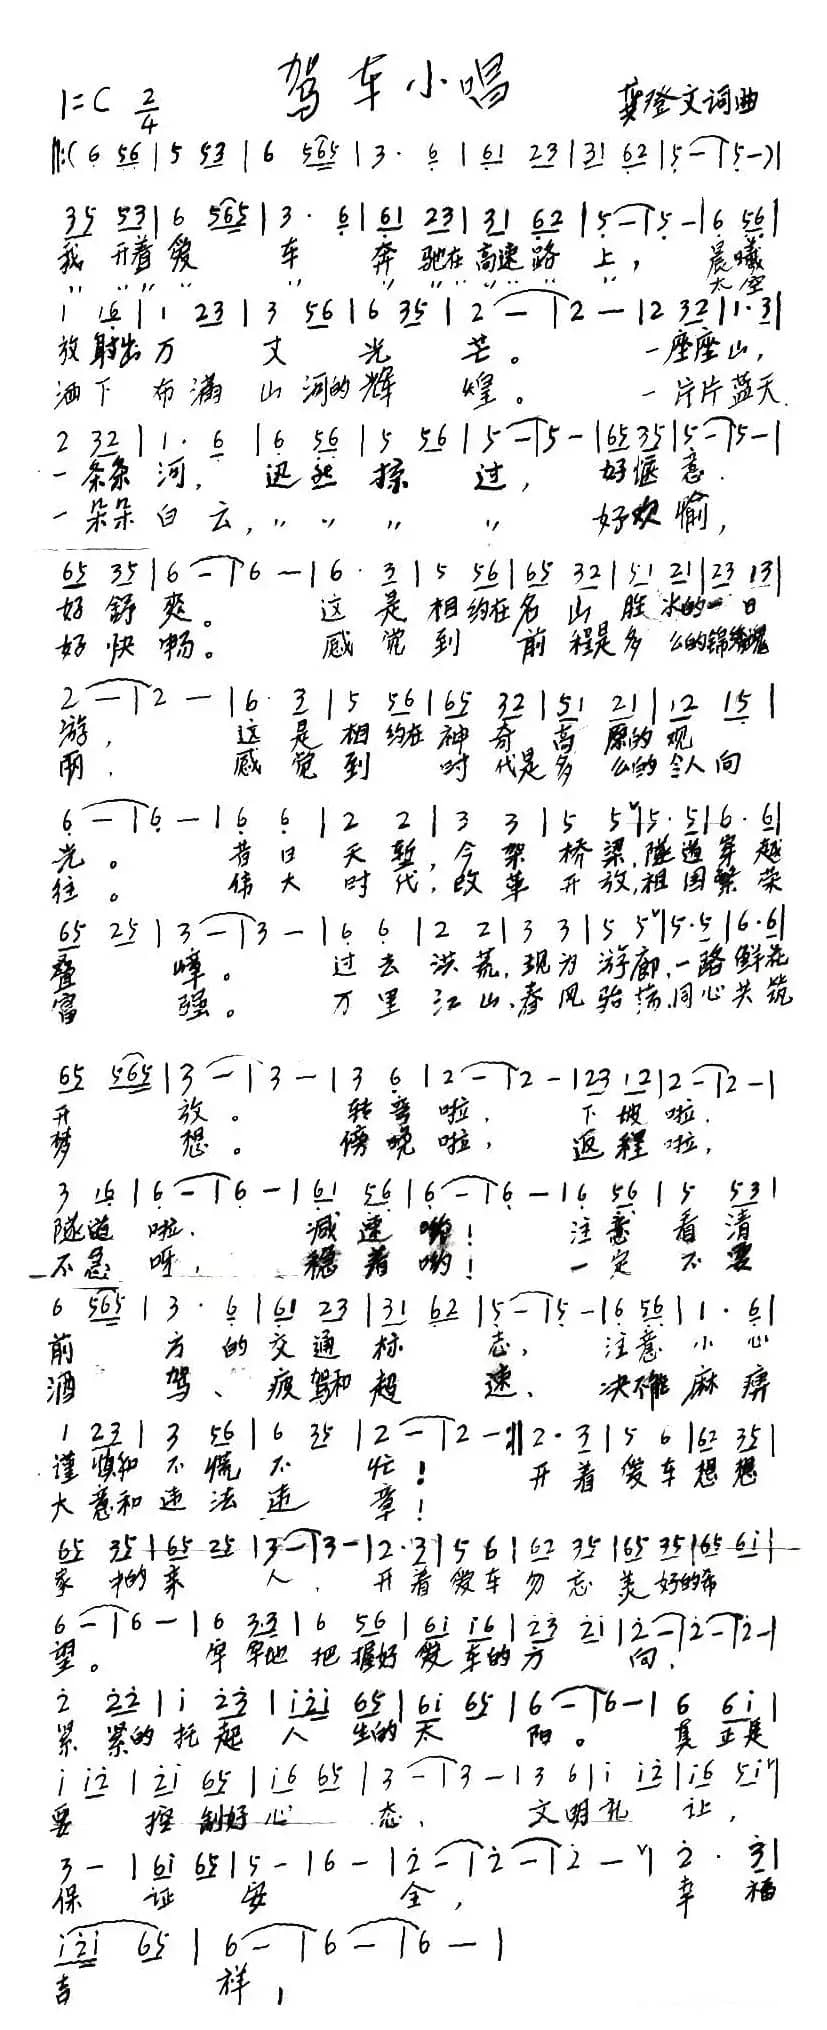 驾车小唱
1=C 2/4 龚澄文词曲
‖:( 6 56 | 5 53 | 6 565 | 3· 6 | 61 23 | 31 62 | 5 — | 5 — )|
35 53 | 6 565 | 3· 6 | 61 23 | 31 62 | 5 — | 5 — | 6 56 |
我开着爱车奔驰在高速路上，晨曦
〃〃〃〃〃〃〃〃〃太空
1 16 | 1 23 | 3 56 | 6 35 | 2 — | 2 — | 2 32 | 1·3 |
放射出万丈光芒。一座座山，
洒下布满山河的辉煌。一片片蓝天.
2 32 | 1· 6 | 6 56 | 5 56 | 5 — | 5 — | 65 35 | 5 — | 5 — |
一条条河，迅然掠过，好惬意.
一朵朵白云，〃〃〃〃好欢愉，
65 35 | 6 — | 6 — | 6· 3 | 5 56 | 65 32 | 51 21 | 23 13 |
好舒爽。这是相约在名山胜水的一日
好快畅。感觉到前程是多么的锦绣
2 — | 2 — | 6· 3 | 5 56 | 65 32 | 51 21 | 12 15 |
游，这是相约在神奇高原的观
丽.感觉到时代是多么的令人向
6 — | 6 — | 6 6 | 2 2 | 3 3 | 5 5ˇ | 5·5 | 6·6 |
光。昔日天堑，今架桥梁，隧道穿越
往。伟大时代，改革开放，祖国繁荣
65 25 | 3 — | 3 — | 6 6 | 2 2 | 3 3 | 5 5ˇ | 5·5 | 6·6 |
叠嶂。过去洪荒，现为游廊，一路鲜花
富强。万里江山、春风骀荡，同心共筑
65 565 | 3 — | 3 — | 3 6 | 2 — | 2 — | 23 12 | 2 — | 2 — |
开放。转弯啦，下坡啦.
梦想。傍晚啦，返程啦，
3 16 | 6 — | 6 — | 61 56 | 6 — | 6 — | 6 56 | 5 53 |
隧道啦.减速哟！注意看清
不急呀，稳着哟！一定不要
6 565 | 3· 6 | 61 23 | 31 62 | 5 — | 5 — | 6 56 | 1· 6 |
前方的交通标志，注意小心
酒驾、疲驾和超速、决不能麻痹
1 23 | 3 56 | 6 35 | 2 — | 2 — :‖ 2·3 | 5 6 | 62 35 |
谨慎和不慌不忙！开着爱车想想
大意和违法违章！
65 35 | 65 25 | 3 — | 3 — | 2·3 | 5 6 | 62 35 | 65 35 | 65 6i |
家的亲人.开着爱车勿忘美好的希
6 — | 6 — | 6 33 | 6 56 | 6i i6 | 2̇3̇ 2̇i | 2̇ — | 2̇ — | 2̇ — |
望。牢牢地把握好爱车的方向.
2̇ 2̇2̇ | i 2̇3̇ | i2̇i 65 | 6i 65 | 6 — | 6 — | 6 6i |
紧紧的托起人生的太阳。真正是
i i2̇ | 2̇i 65 | i6 65 | 3 — | 3 — | 3 6 | i i2̇ | i6 5iˇ |
要控制好心态.文明礼让，
3 — | 6i 65 | 5 — | 6 — | 2̇ — | 2̇ — | 2̇ —ˇ | 2̇· 3̇ |
保证安全，幸福
i2̇i 65 | 6 — | 6 — | 6 — |
吉祥，